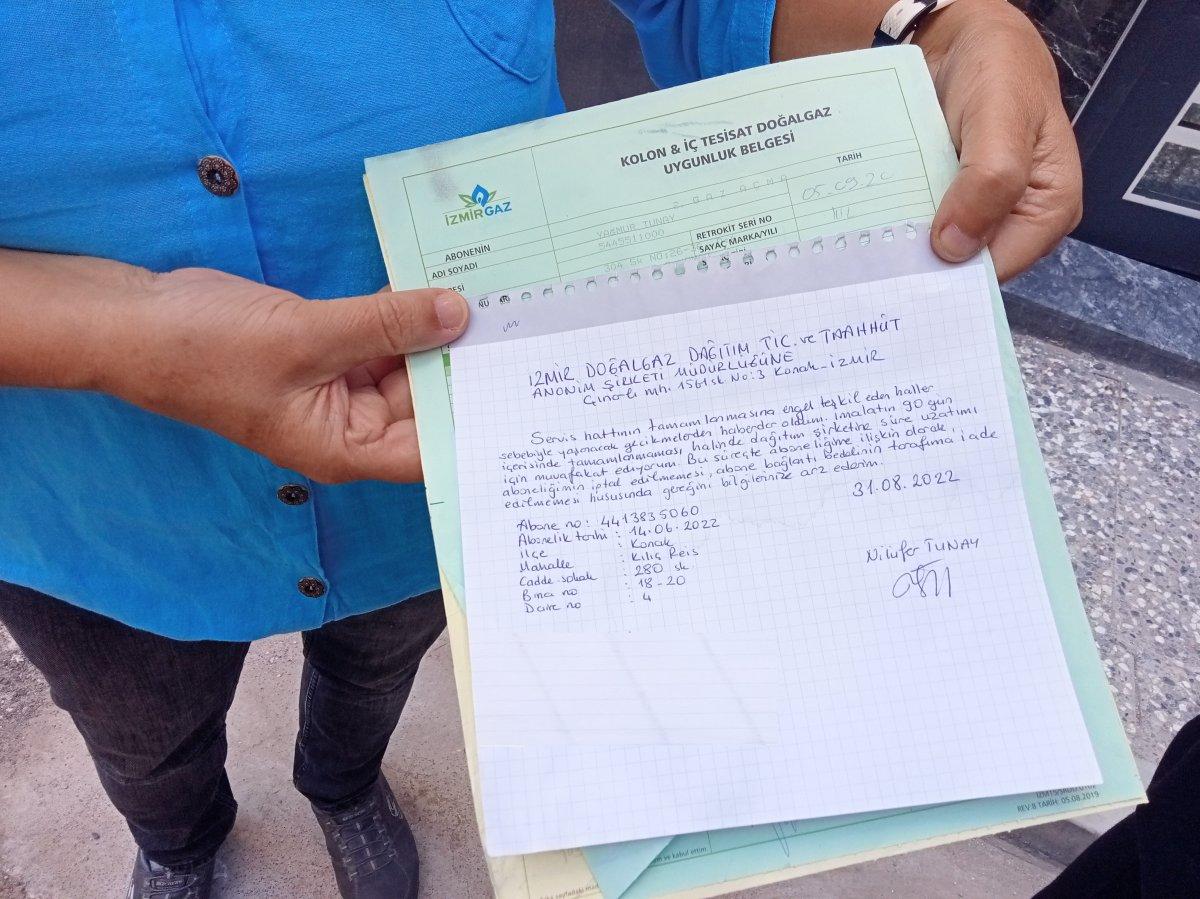 KOLON & İÇ TESİSAT DOĞALGAZ
UYGUNLUK BELGESİ
İZMİRGAZ
TARİH
05.09.20
2 GAZ AÇMA
ABONENİN
YAĞMUR TUNAY
RETROKİT SERİ NO
ADI SOYADI
5445511000
SAYAÇ MARKA/YILI
304 SK NO:26-
İZMİR DOĞALGAZ DAĞITIM TİC. ve TAAHHÜT
ANONİM ŞİRKETİ MÜDÜRLÜĞÜNE
Çınarlı mh. 1561 sk No:3 Konak-İZMİR
Servis hattının tamamlanmasına engel teşkil eden haller
sebebiyle yaşanacak gecikmelerden haberdar oldum. İmalatın 90 gün
içerisinde tamamlanmaması halinde dağıtım şirketine süre uzatımı
için muvafakat ediyorum. Bu süreçte aboneliğime ilişkin olarak,
aboneliğimin iptal edilmemesi, abone bağlantı bedelinin tarafıma iade
edilmemesi hususunda gereğini bilgilerinize arz ederim.
31.08.2022
Abone no : 4413835060
Abonelik tarihi : 14.06.2022
İlçe : Konak
Mahalle : Kılıç Reis
Cadde-sokak : 280 sk
Bina no : 18-20
Daire no : 4
Nilüfer TUNAY
REV:8 TARİH: 05.08.2019
ve kabul ettim